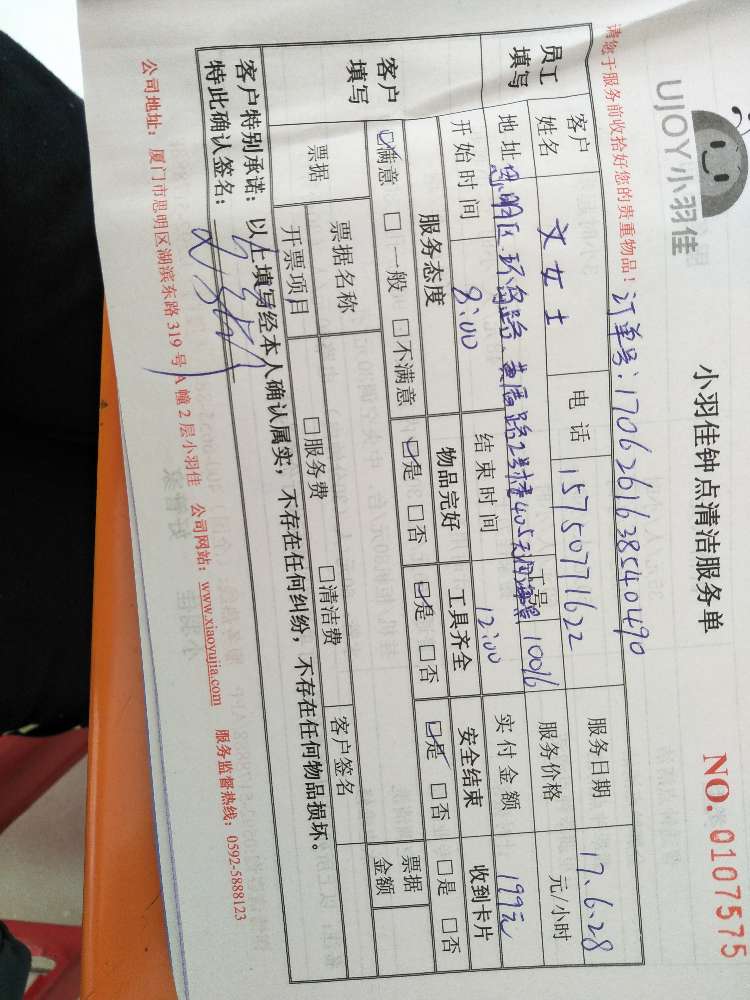 UJOY小羽佳
小羽佳钟点清洁服务单
NO. 0107575
请您于服务前收拾好您的贵重物品！
订单号：1706261638540490
员工填写
客户姓名 文女士 电话 15750771622 服务日期 17.6.28
地址 思明区环岛路黄厝路2号楼405 工号 10016 服务价格 元/小时
开始时间 8:00 结束时间 12:00 实付金额 199元
客户填写
服务态度 物品完好 工具齐全 安全结束 收到卡片
☑满意 □一般 □不满意 ☑是 □否 ☑是 □否 ☑是 □否 □是 □否
票据 票据名称 客户签名 票据金额
开票项目 □服务费 □清洁费
客户特别承诺：以上填写经本人确认属实，不存在任何纠纷，不存在任何物品损坏。
特此确认签名：
公司地址：厦门市思明区湖滨东路319号A幢2层小羽佳 公司网站：www.xiaoyujia.com 服务监督热线：0592-5888123